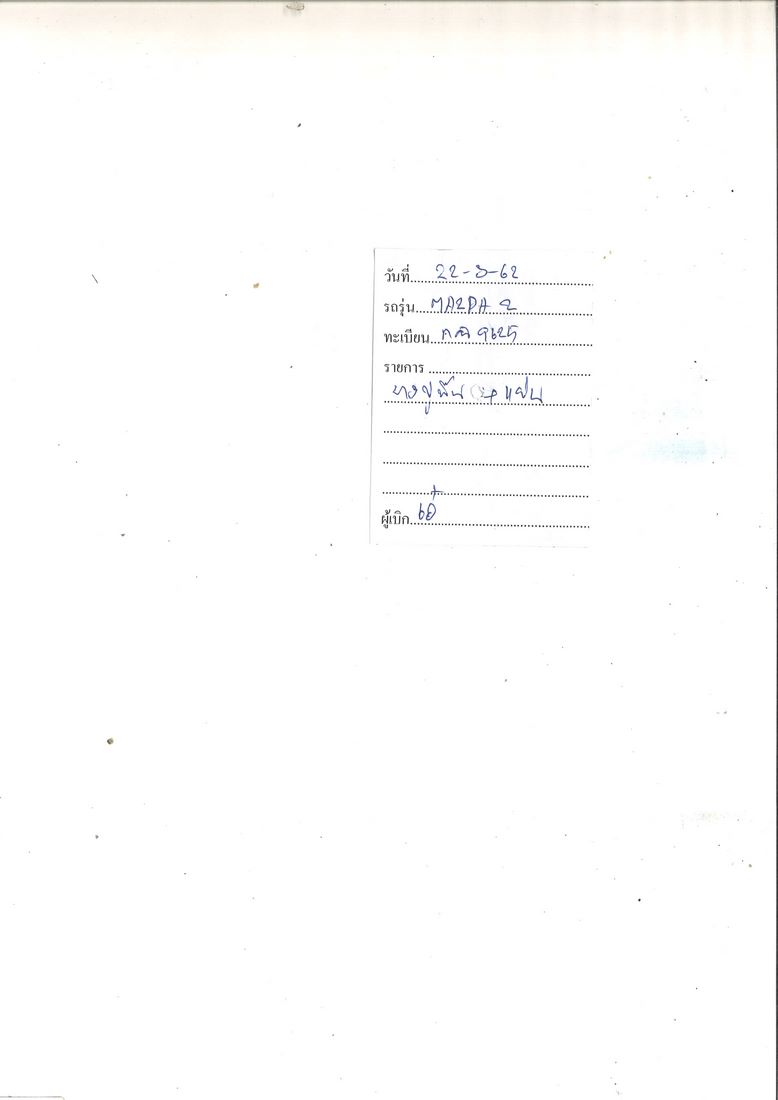 วันที่ 22-3-62
รถรุ่น MAZDA 2
ทะเบียน 9625
รายการ
ยางปูพื้น แผ่น
ผู้เบิก